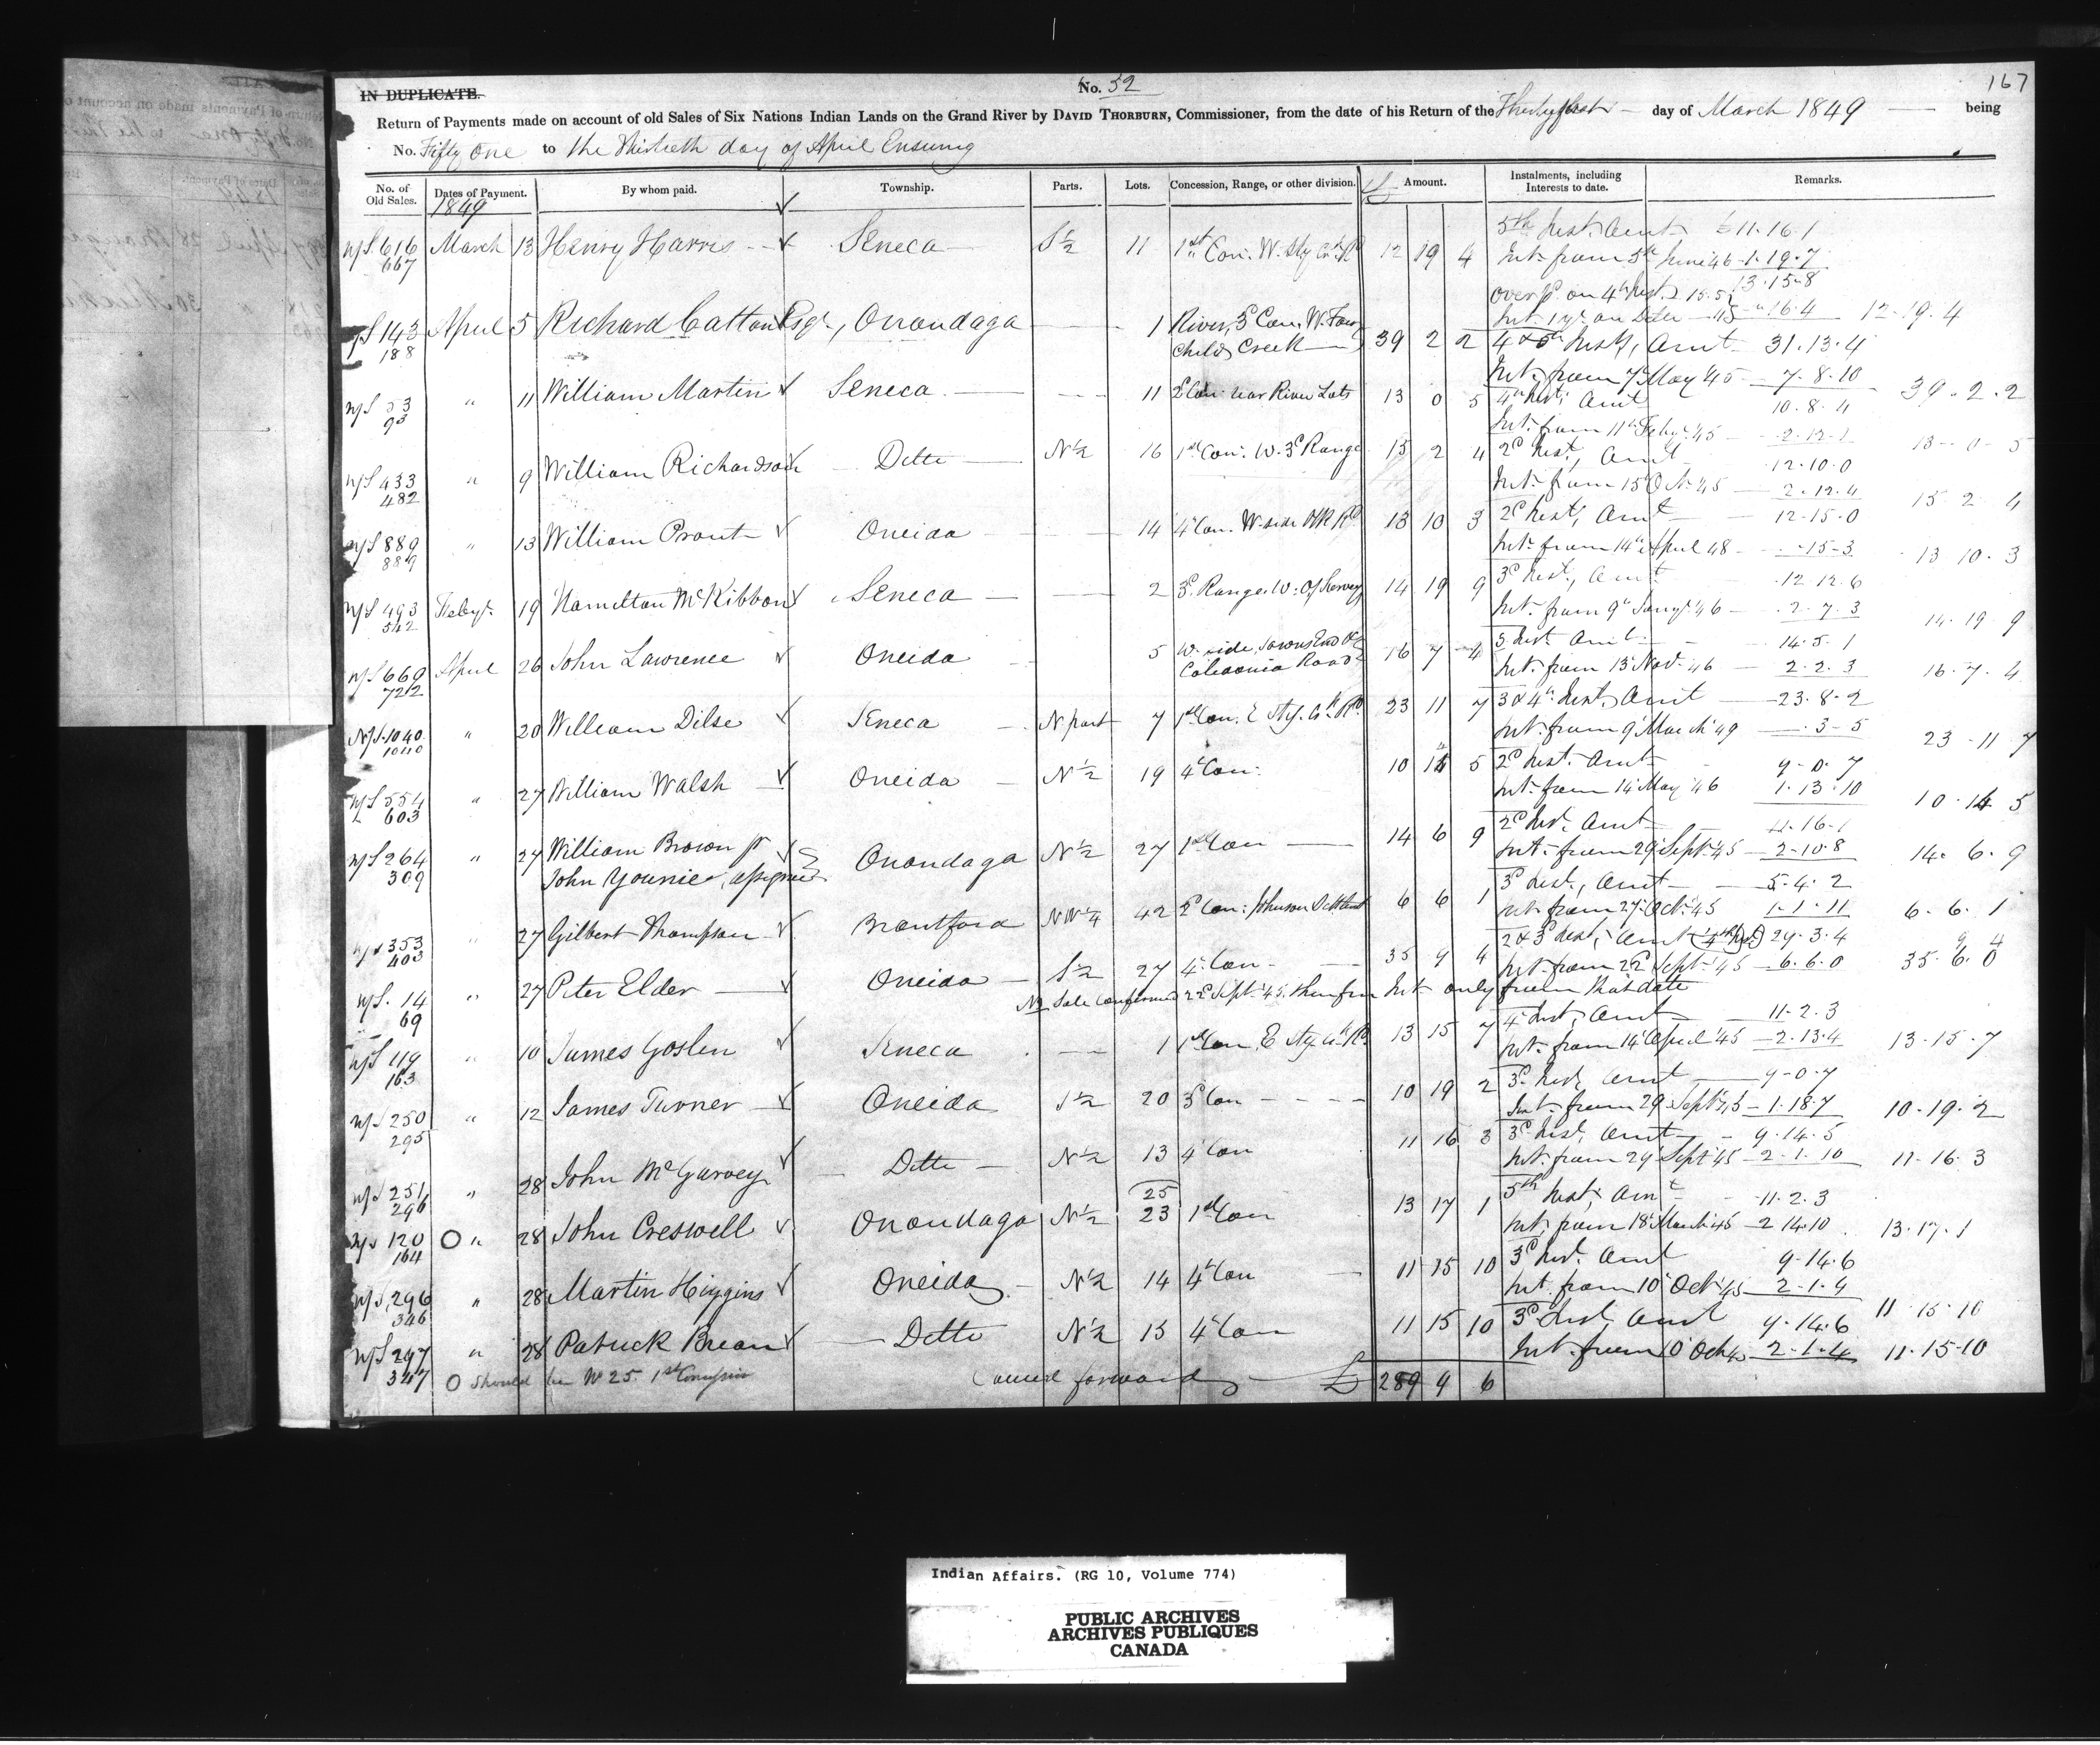 167
No. 52
IN DUPLICATE.
Return of Payments made on account of old Sales of Six Nations Indian Lands on the Grand River by DAVID THORBURN, Commissioner, from the date of his Return of the Thirtyfirst day of March 1849 being
No. Fifty One to the Thirtieth day of April Ensuing
No. of Old Sales. Dates of Payment. By whom paid. Township. Parts. Lots. Concession, Range, or other division. £ Amount. Instalments, including Interests to date. Remarks.
1849
616 667 March 13 Henry Harris Seneca S½ 11 1st Con. W. 12 19 4 5th Inst. Amt £11.16.1
Int. from 5th June 46 1.19.7
13.15.8
over pd. on 4th Inst.
Int. 1 yr. on Ditto 16.4 12.19.4
143 188 April 5 Richard Catton Esqr., Onondaga 1 River, 3d Con. W. Fair
Childs Creek 39 2 2 4 & 5th Insts, Amt 31.13.4
Int. from 7th May 45 7.8.10 39.2.2
53 93 " 11 William Martin Seneca 11 2d Con: near River Lots 13 0 5 4th Inst. Amt 10.8.4
Int. from 11th Feby. 45 2.12.1 13 0 5
433 482 " 9 William Richardson Ditto N½ 16 1st Con: W. 3d Range 15 2 4 2d Inst, Amt 12.10.0
Int. from 15 Oct. 45 2.12.4 15 2 4
889 889 " 13 William Prout Oneida 14 4 Con. W. side PK Rd 13 10 3 2d Inst, Amt 12.15.0
Int. from 14th April 48 15.3 13 10.3
493 542 Feby. 19 Hamilton McKibbon Seneca 2 3d Range W. of Survey 14 19 9 3d Inst, Amt 12 12.6
Int. from 9th Jany. 46 2.7.3 14.19 9
669 722 April 26 John Lawrence Oneida 5 W. side, Towns End Of
Caledonia Road 16 7 4 3 Inst. Amt. 14.5.1
Int. from 13 Nov. 46 2.2.3 16.7.4
1040 1040 " 20 William Dilse Seneca N part 7 1st Con. E 23 11 7 3 & 4th Inst. Amt 23.8.2
Int. from 9 March 49 3.5 23.11.7
554 603 " 27 William Walsh Oneida N½ 19 4 Con: 10 14 5 2d Inst. Amt 9.0.7
Int. from 14 May 46 1.13.10 10.14 5
264 309 " 27 William Brown Jr
John Younie, assignee Onondaga N½ 27 1st Con 14 6 9 2d Inst. Amt 11.16.1
Int. from 29 Sept. 45 2.10.8 14.6.9
353 403 " 27 Gilbert Thompson Brantford NW¼ 42 2d Con: Johnson Settlemt 6 6 1 3d Inst, Amt 5.4.2
Int. from 27 Oct. 45 1.1.11 6.6.1
14 69 " 27 Peter Elder Oneida S½ 27 4 Con 35 9 4 2 & 3d Inst, Amt 29.3.4
Int. from 22 Sept. 45 6.6.0 35.6.0
9 4
Sale confirmed 22d Sept. 45. therefore Int only from that date
119 163 " 10 James Goslen Seneca 1 1st Con, E 13 15 7 4 Inst, Amt 11.2.3
Int. from 14 April 45 2.13.4 13.15.7
250 295 " 12 James Turner Oneida S½ 20 3d Con 10 19 2 3d Inst, Amt 9.0.7
Int. from 29 Sept. 45 1.18.7 10.19.2
251 296 " 28 John McGarvey Ditto N½ 13 4 Con 11 16 3 3d Inst, Amt 9.14.5
Int. from 29 Sept 45 2.1.10 11.16.3
25
120 164 O " 28 John Creswell Onondaga N½ 23 1st Con 13 17 1 5th Inst, Amt 11.2.3
Int. from 18 March 45 2 14.10 13.17.1
296 346 " 28 Martin Higgins Oneida N½ 14 4 Con 11 15 10 3d Inst. Amt 9.14.6
Int. from 10 Oct. 45 2.1.4 11.15.10
297 347 " 28 Patrick Brean Ditto N½ 15 4 Con 11 15 10 3d Inst, Amt 9.14.6
Int. from 10 Oct 45 2.1.4 11.15.10
O Should be No 25. 1st Concession
Carried forward £ 289 9 6
Indian Affairs. (RG 10, Volume 774)
PUBLIC ARCHIVES
ARCHIVES PUBLIQUES
CANADA